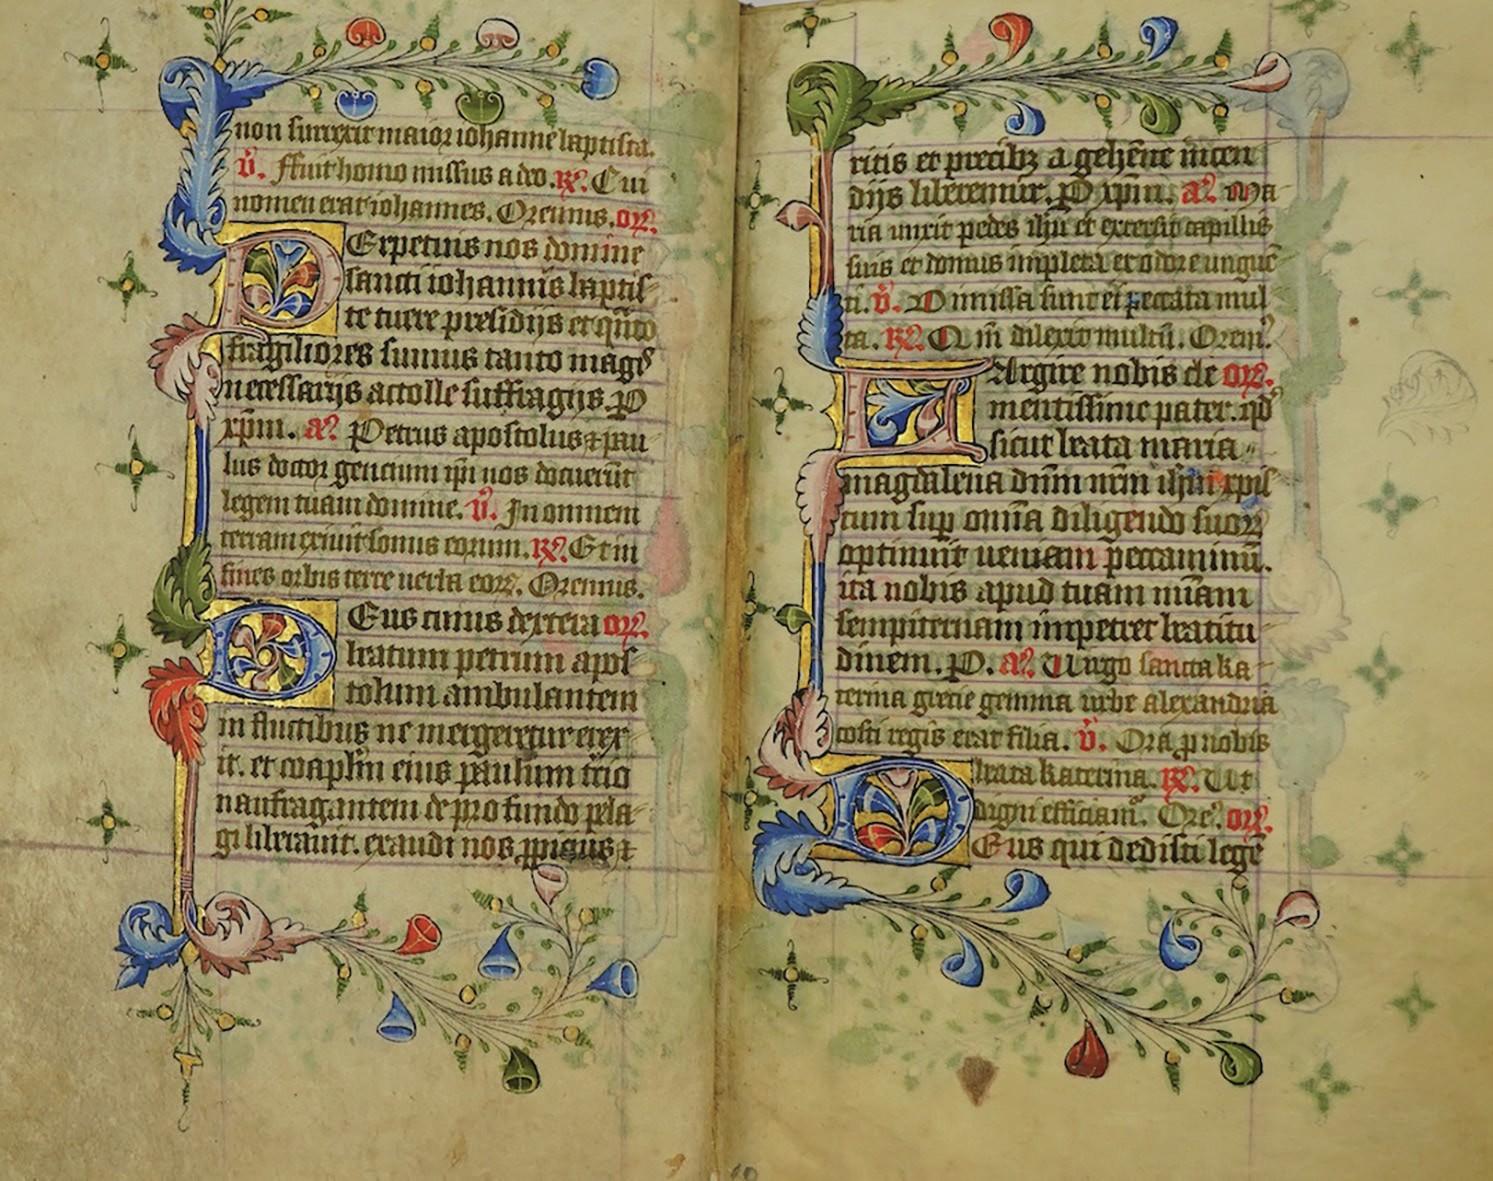 non surrexit maior iohanne baptista.
v̄. Ffuit homo missus a deo. R̷. Cui
nomen erat iohannes. Oremus. or̷.
PErpetuis nos domine
sancti iohannis baptis-
te tuere presidijs et q̄nto
fragiliores sumus tanto mag̉
necessarijs attolle suffragijs. P
xp̄m. a᷒. Petrus apostolus ⁊ pau
lus doctor gencium ip̄i nos docuer̄t
legem tuam domine. v̄. In omnem
terram exiuit sonus eorum. R̷. Et in
fines orbis terre uerba eor̷. Oremus.
DEus cuius dextera or̷.
beatum petrum apos
tolum ambulantem
in fluctibus ne mergeretur erex
it. et coap̄lm eius paulum t̄cio
naufragantem de profundo pela-
gi liberauit. exaudi nos ꝓpicius ⁊
ritis et precibꝫ a gehēne incen
dijs liberemur. P xp̄m. a᷒. Ma
ria unxit pedes ih̄u et extersit capillis
suis et domus impleta ex odore unguē
ti. v̄. Dimissa sunt ei peccata mul
ta. R̷. Qm̄ dilexit multū. Orem̉.
LArgire nobis cle or̷.
mentissime pater. qd̄
sicut beata maria
magdalena dn̄m nr̄m ih̄m xpis
tum suꝑ om̄ia diligendo suor̷
optinuit ueniam peccaminū.
ita nobis apud tuam mīam
sempiternam impetret beatitu
dinem. P. a᷒. Uirgo sancta ka
terina grecie gemma urbe alexandria
costi regis erat filia. v̄. Ora ꝓ nobis
beata katerina. R̷. Ut
digni efficiam̉. Ore᷒. or̷.
DEus qui dedisti legē